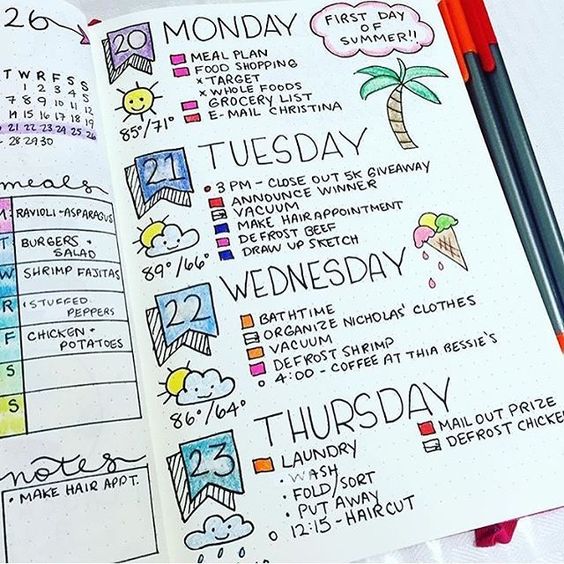 26
T W R F S S
1 2 3 4 5
7 8 9 10 11 12
15 16 17 18 19
21 22 23 24 25 26
28 29 30
meals
M: RAVIOLI - ASPARAGUS
T BURGERS + SALAD
W SHRIMP FAJITAS
R STUFFED PEPPERS
F CHICKEN + POTATOES
S
S
notes
• MAKE HAIR APPT.
20
MONDAY
FIRST DAY
OF
SUMMER!!
MEAL PLAN
FOOD SHOPPING
× TARGET
× WHOLE FOODS
GROCERY LIST
E-MAIL CHRISTINA
85°/71°
21
TUESDAY
• 3 PM - CLOSE OUT 5K GIVEAWAY
ANNOUNCE WINNER
VACUUM
MAKE HAIR APPOINTMENT
DEFROST BEEF
DRAW UP SKETCH
89°/66°
22
WEDNESDAY
BATHTIME
ORGANIZE NICHOLAS' CLOTHES
VACUUM
DEFROST SHRIMP
○ 4:00 - COFFEE AT THIA BESSIE'S
86°/64°
23
THURSDAY
LAUNDRY
• WASH
• FOLD/SORT
• PUT AWAY
○ 12:15 - HAIRCUT
MAIL OUT PRIZE
DEFROST CHICKE